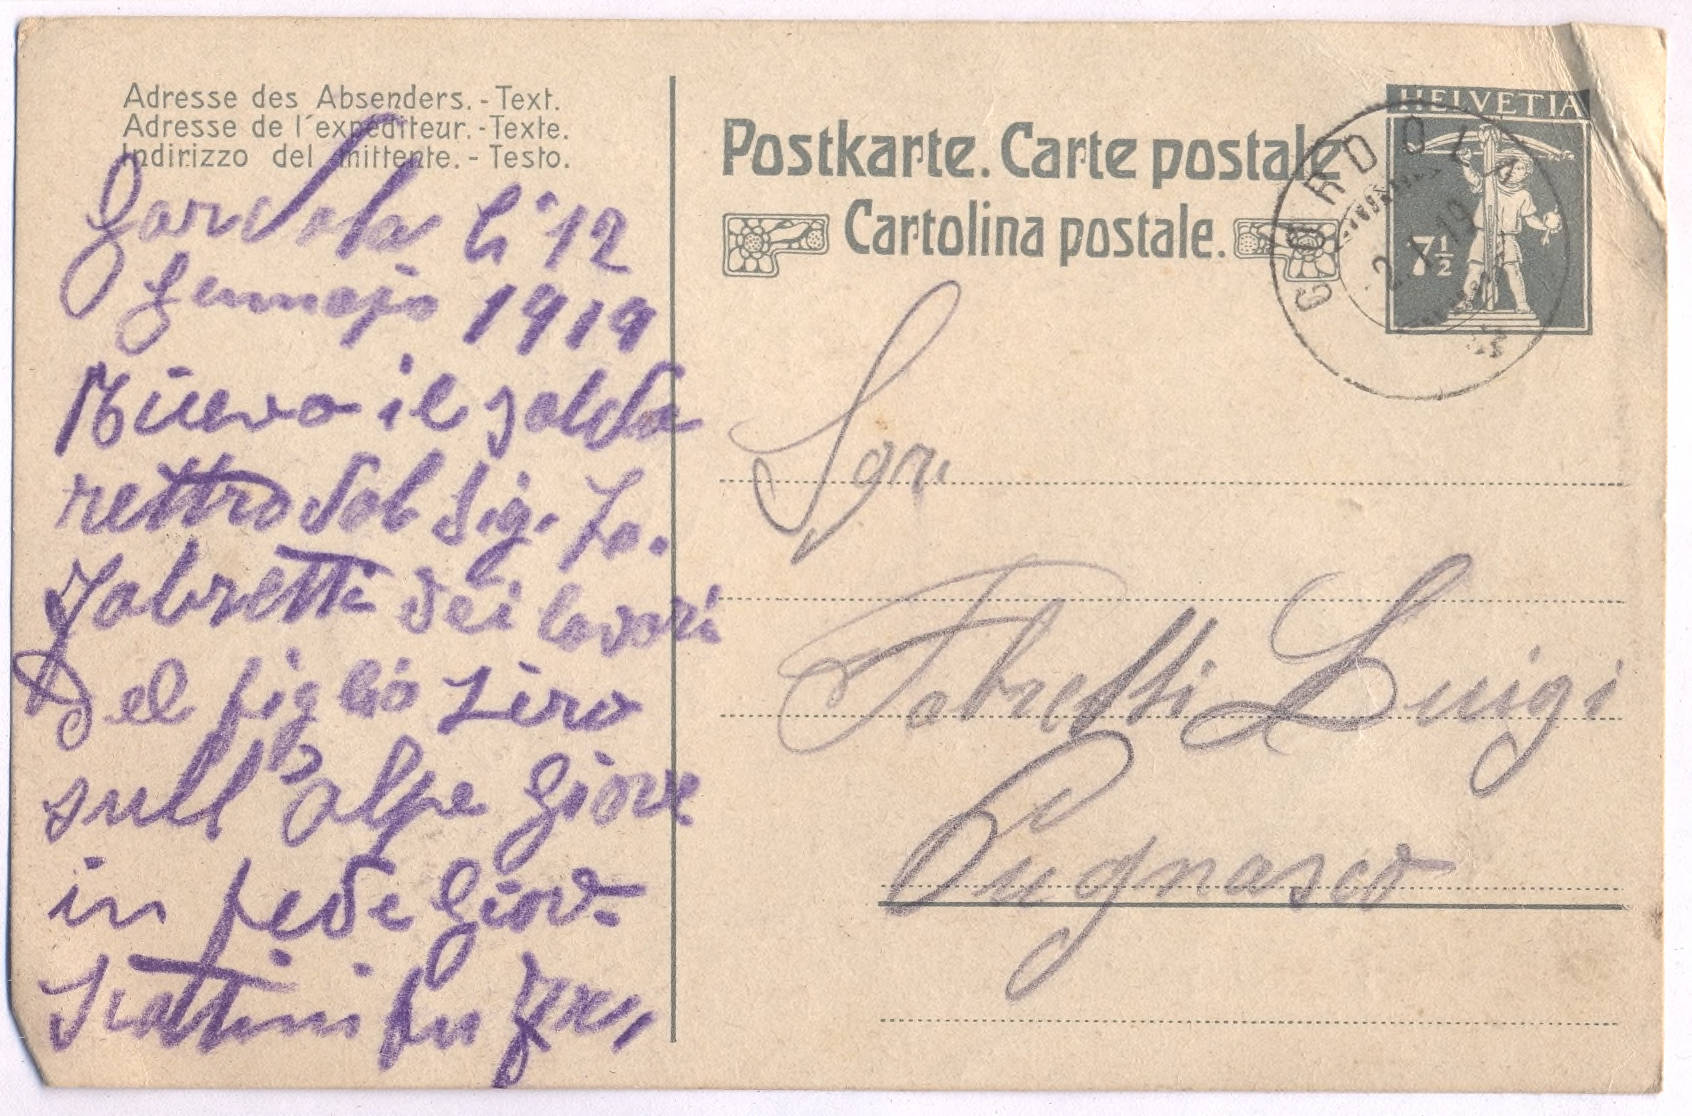 Adresse des Absenders. - Text.
Adresse de l'expéditeur. - Texte.
Indirizzo del mittente. - Testo.
Gordola li 12
Gennajo 1919
il saldo
rettro dal Sig. Fo.
Fabretti dei lavori
del figlio
sull'alpe Giove
in fede Giov.
fu
Postkarte. Carte postale
Cartolina postale.
HELVETIA
7½
GORDOLA
2.1.19
Sgr.
Fabretti Luigi
Cugnasco